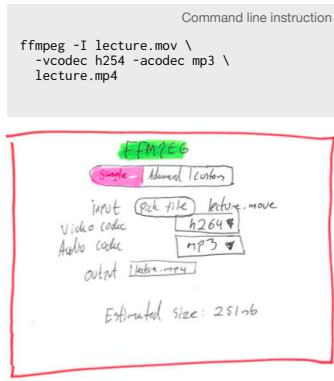 Command line instruction
ffmpeg -I lecture.mov \
-vcodec h254 -acodec mp3 \
lecture.mp4
FFMPEG
Simple Advanced | Custom
input Pick file lecture.move
Video codec h264
Audio codec mp3
output lecture.mp4
Estimated size: 251mb